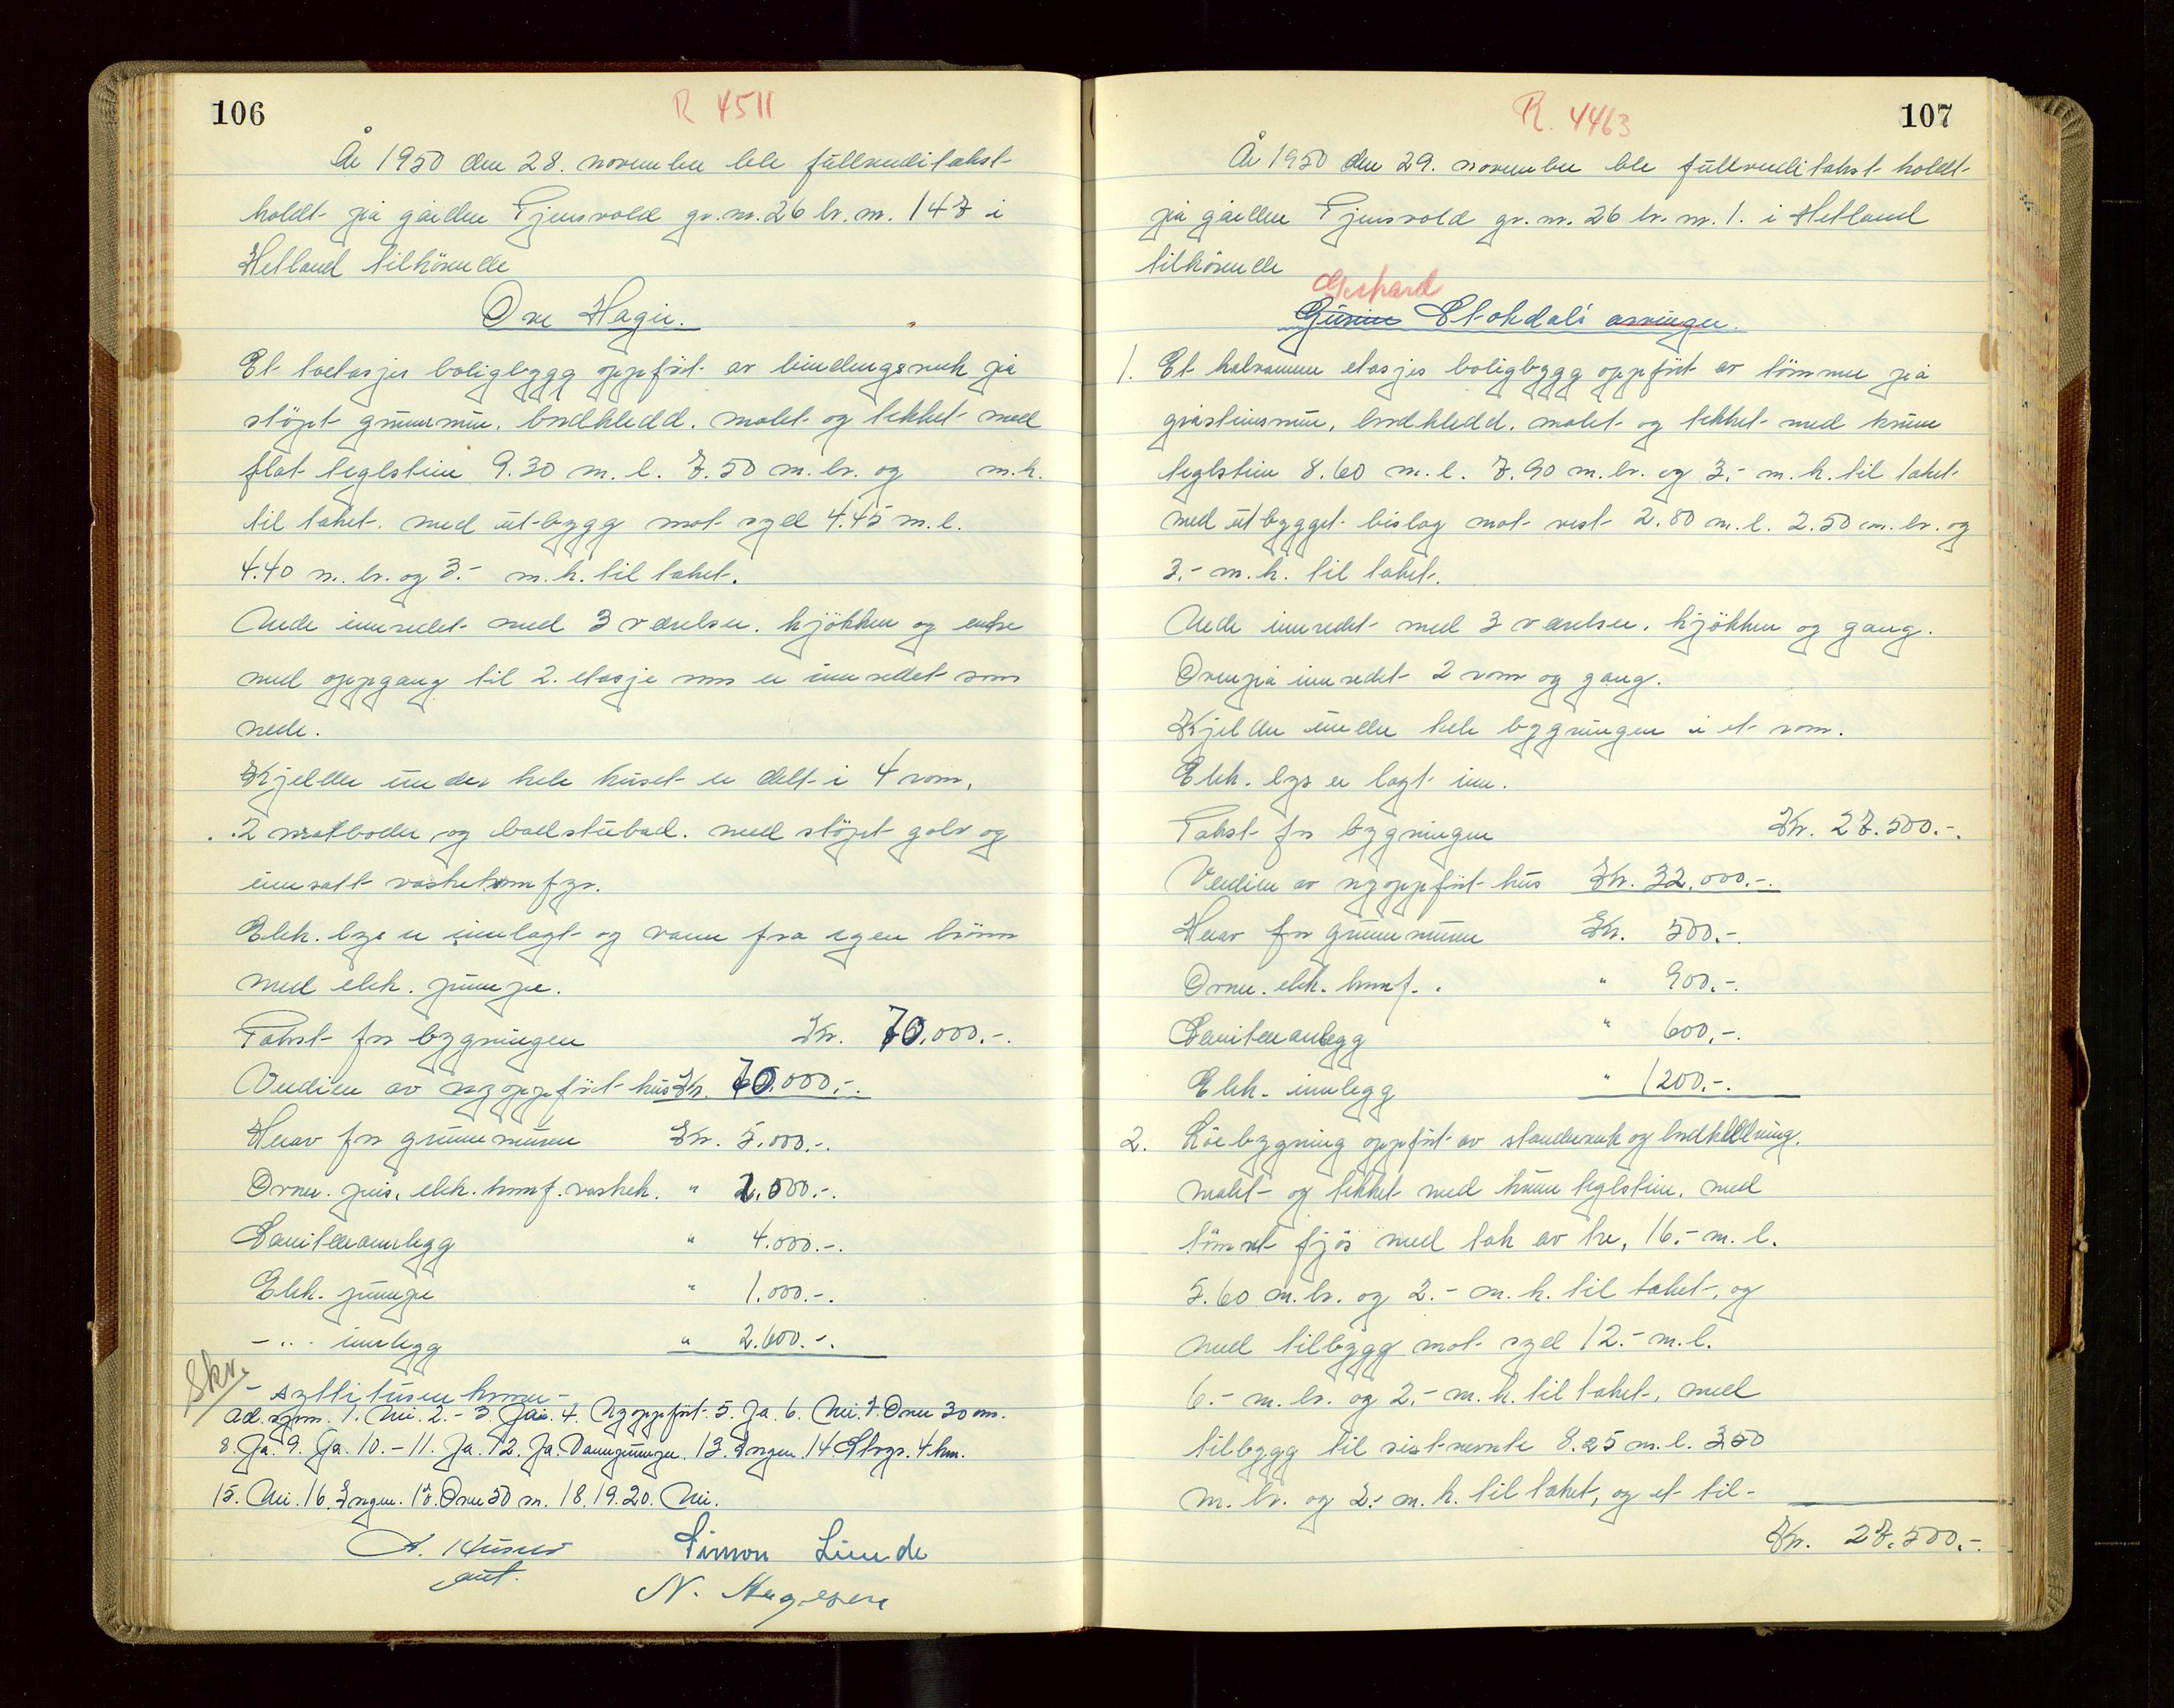 106
R 4511
År 1950 den 28. november ble fullverditakst
holdt på gården Tjensvold gr. nr. 26 br. nr. 147 i
Hetland tilhörende
Ove Hager.
Et toetasjes boligbygg oppfört av bindingsverk på
stöpt grunnmur, bordkledd, malet og tekket med
flat teglstein 9.30 m. l. 7.50 m. br. og m. h.
til taket. med utbygg mot syd 4.45 m. l.
4.40 m. br. og 3.- m. h. til taket.
Nede innredet med 3 værelser, kjökken og entre
med oppgang til 2. etasje som er innredet som
nede.
Kjeller under hele huset er delt i 4 rom,
2 matboder og badstubad. med stöpt golv og
innsatt vaskekomfyr.
Elek. lys er innlagt og vann fra egen brönn
med elek. pumpe.
Takst for bygningen Kr. 70.000.-.
Verdien av nyoppfört hus Kr. 70.000.-.
Herav for grunnmuren Kr. 5.000.-.
Ovner. peis, elek. komf. vaskek. " 2.500.-.
Sanitæranlegg " 4.000.-.
Elek. pumpe " 1.000.-.
- " - innlegg " 2.600.-.
Skr.
- sytti tusen kroner -
Ad. spm. 1. Nei. 2. - 3. Ja. 4. Nyoppfört. 5. Ja. 6. Nei. 7. Over 30 m.
8. Ja. 9. Ja. 10. - 11. Ja. 12. Ja. Vannpumpe. 13. Ingen. 14. Stvgs. 4 km.
15. Nei. 16. Ingen. 17. Over 50 m. 18. 19. 20. Nei.
Simon Lunde
N. Aagesen
107
R. 4463
År 1950 den 29. november ble fullverditakst holdt
på gården Tjensvold gr. nr. 26 br. nr. 1. i Hetland
tilhörende
Gerhard
Stokdals arvinger.
1. Et halvannen etasjes boligbygg oppfört av tömmer på
gråsteinsmur, bordkledd, malet og tekket med krum
teglstein 8.60 m. l. 7.90 m. br. og 3.- m. h. til taket
med utbygget bislag mot vest 2.80 m. l. 2.50 m. br. og
3.- m. h. til taket.
Nede innredet med 3 værelser, kjökken og gang.
Ovenpå innredet 2 rom og gang.
Kjeller under hele bygningen i et rom.
Elek. lys er lagt inn.
Takst for bygningen Kr. 27.500.-.
Verdien av nyoppfört hus Kr. 32.000.-.
Herav for grunnmuren Kr. 500.-.
Ovner. elek. komf. " 900.-.
Sanitæranlegg " 600.-.
Elek. innlegg " 1200.-.
2. Löebygning oppfört av stenderverk og bordkledning.
malet og tekket med krum teglstein, med
tömret fjös med tak av tre, 16.- m. l.
5.60 m. br. og 2.- m. h. til taket, og
med tilbygg mot syd 12.- m. l.
6.- m. br. og 2.- m. h. til taket, med
tilbygg til sistnevnte 8.25 m. l. 3.50
m. br. og 2.- m. h. til taket, og et til-
Kr. 27.500.-.